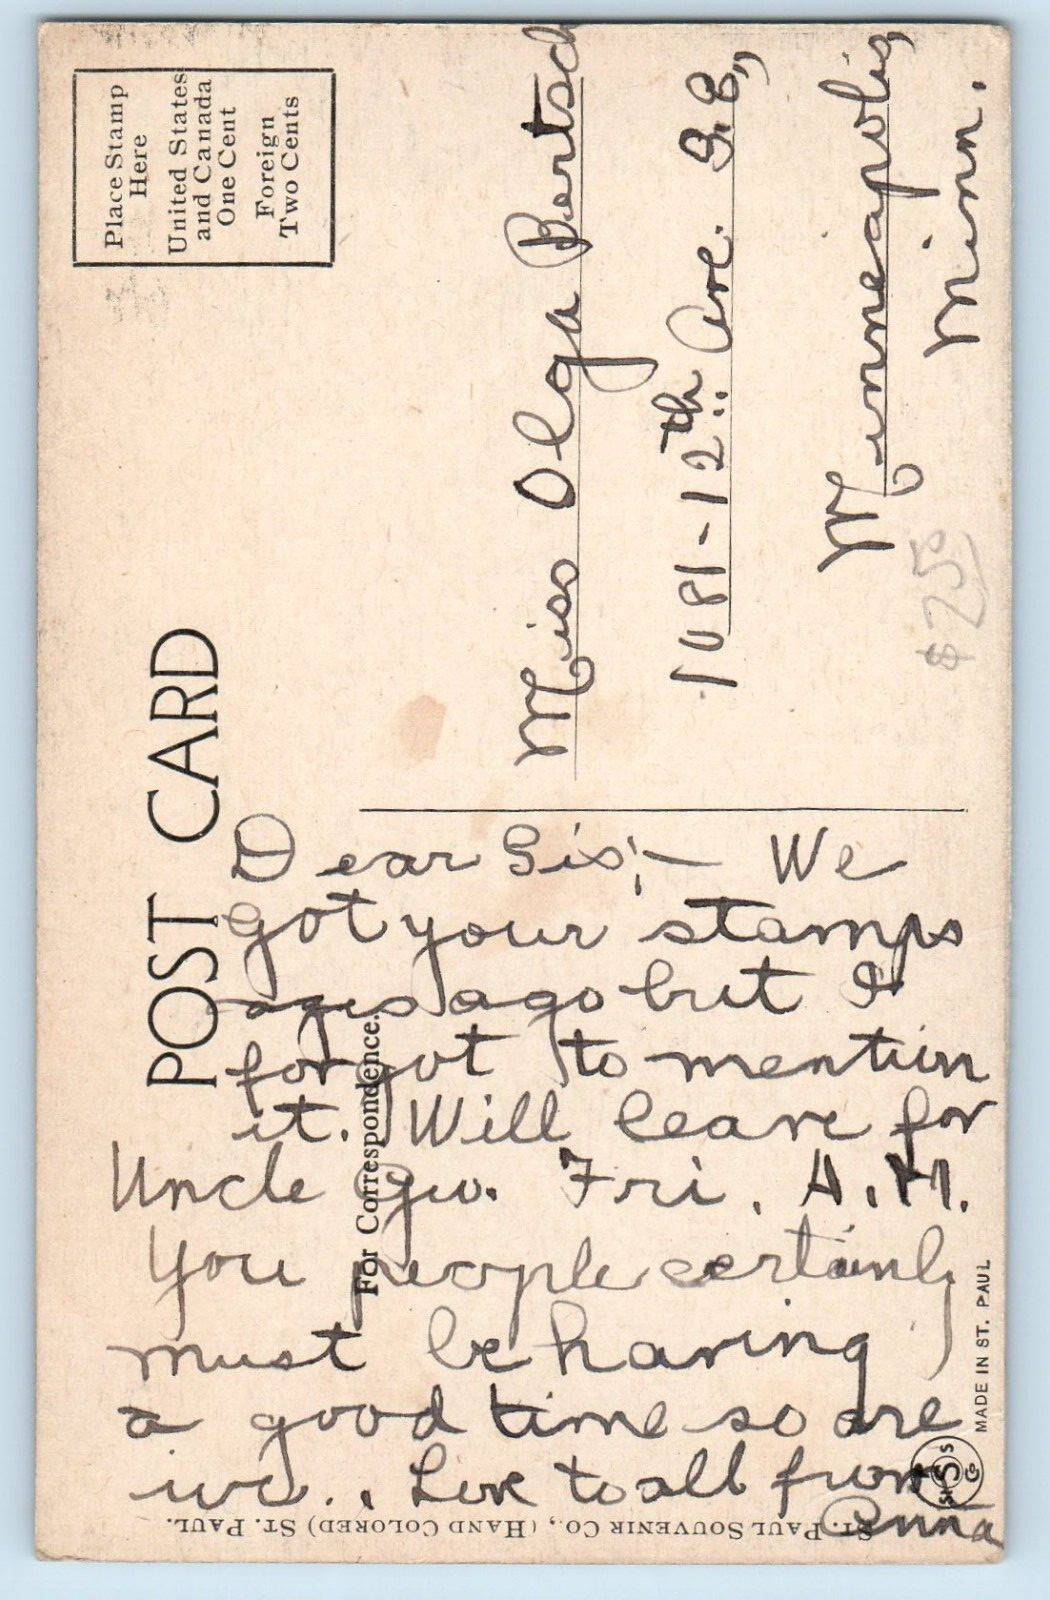 Place Stamp
Here
United States
and Canada
One Cent
Foreign
Two Cents
POST CARD
For Correspondence.
Miss Olga Bertsch
1081-12th Ave. S.E.,
Minneapolis,
Minn.
$250
Dear Sis;- We
got your stamps
ages ago but I
forgot to mention
it. Will leave for
Uncle Geo. Fri. A.M.
You people certainly
must be having
a good time so are
we.. Love to all from
Anna
MADE IN ST. PAUL
ST. PAUL SOUVENIR CO., (HAND COLORED) ST. PAUL.